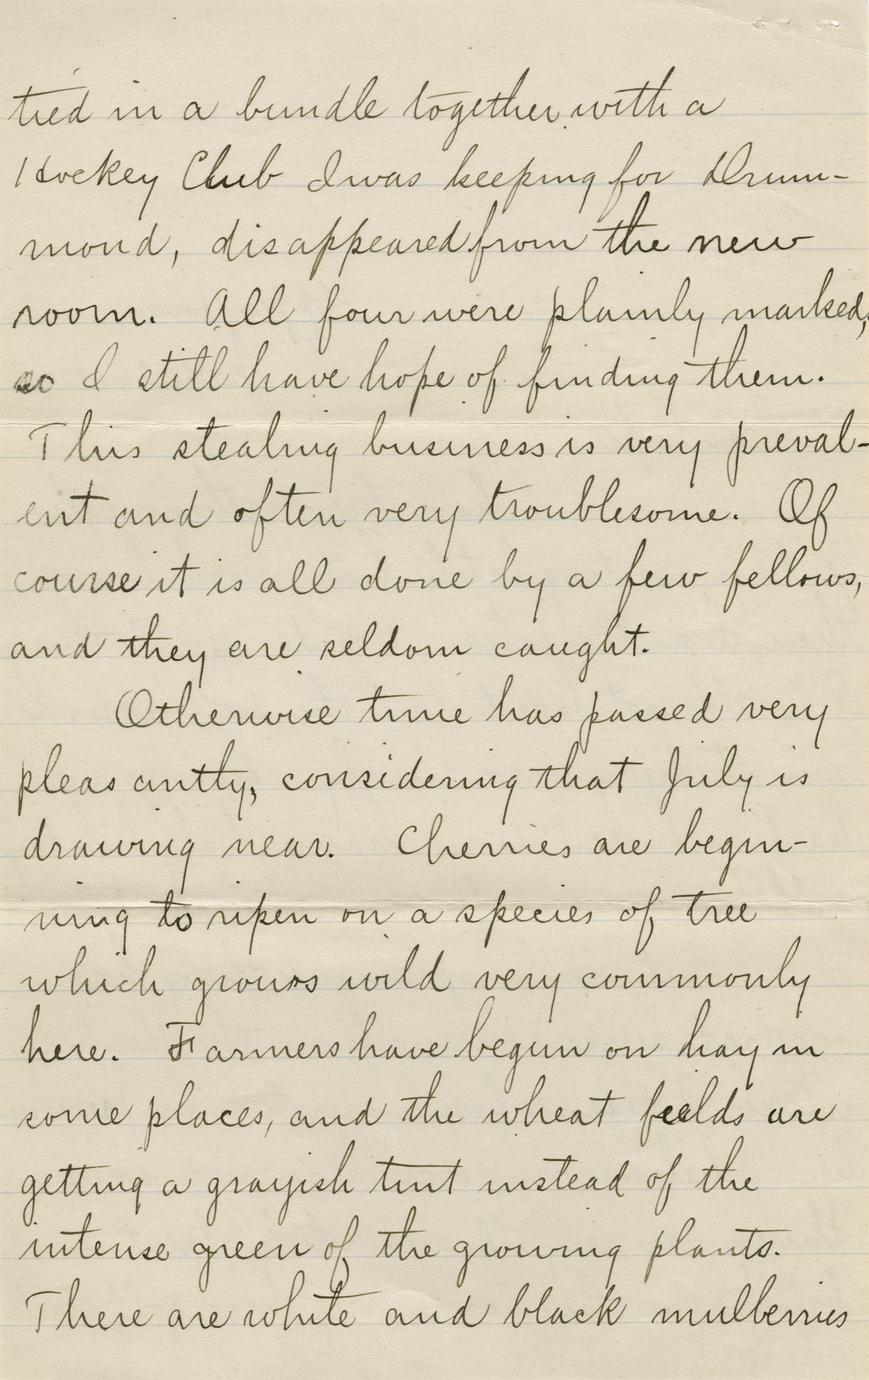 tied in a bundle together with a
Hockey Club I was keeping for Drum-
mond, disappeared from the new
room. All four were plainly marked,
so I still have hope of finding them.
This stealing business is very preval-
ent and often very troublesome. Of
course it is all done by a few fellows,
and they are seldom caught.
Otherwise time has passed very
pleasantly, considering that July is
drawing near. Cherries are begin-
ning to ripen on a species of tree
which grows wild very commonly
here. Farmers have begun on hay in
some places, and the wheat feelds are
getting a grayish tint instead of the
intense green of the growing plants.
There are white and black mulberries